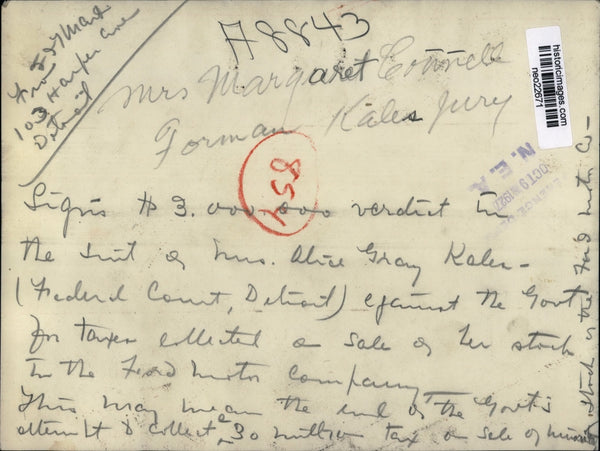 A8843
From E J Mark
103 Harper ave
Detroit
Mrs Margaret Connell
Forman Kales Jury
854
historicimages.com
neo22671
N. E. A.
OCT 9 1927
Signs $3.000.000 verdict in
the suit of Mrs. Alice Gray Kales -
(Federal Court, Detroit) against the Govt
for taxes collected on sale of her stock
in the Ford Motor Company
This may mean the end of the Govt's
attempt to collect 30 million tax on sale of minority
stock in the Ford Motor Co -